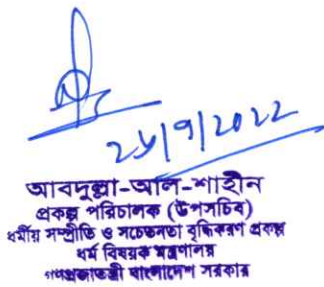 ২৮/9/2022
আবদুল্লা-আল-শাহীন
প্রকল্প পরিচালক (উপসচিব)
ধর্মীয় সম্প্রীতি ও সচেতনতা বৃদ্ধিকরণ প্রকল্প
ধর্ম বিষয়ক মন্ত্রণালয়
গণপ্রজাতন্ত্রী বাংলাদেশ সরকার